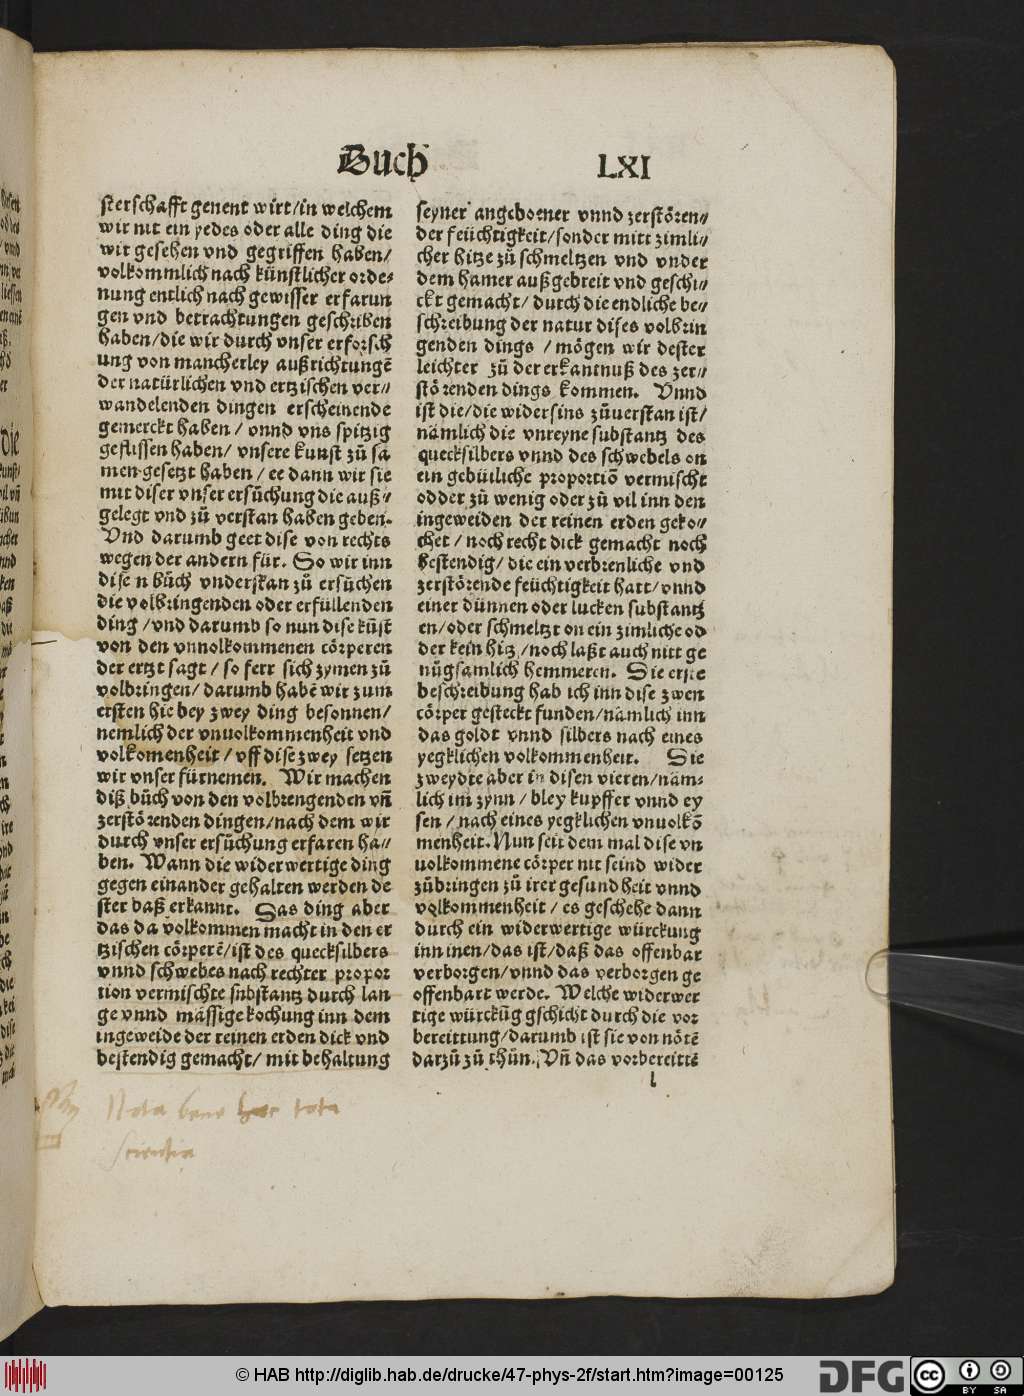 Buch
LXI
sterschafft genent wirt/in welchem
wir nit ein yedes oder alle ding die
wir gesehen vnd gegriffen haben/
volkommlich nach künstlicher orde⸗
nung entlich nach gewisser erfarun
gen vnd betrachtungen geschriben
haben/die wir durch vnser erforsch
ung von mancherley außrichtungẽ
der natürlichen vnd ertzischen ver⸗
wandelenden dingen erscheinende
gemerckt haben/ vnnd vns spitzig
geflissen haben/ vnsere kunst zů sa
men gesetzt haben/ ee dann wir sie
mit diser vnser ersůchung die auß⸗
gelegt vnd zů verstan haben geben.
Vnd darumb geet dise von rechts
wegen der andern für. So wir inn
disen bůch vnderstan zů ersůchen
die volbringenden oder erfüllenden
ding/vnd darumb so nun dise kũst
von den vnnolkommenen cörperen
der ertzt sagt/ so ferr sich zymen zů
volbringen/darumb habẽ wir zum
ersten hie bey zwey ding besonnen/
nemlich der vnuolkommenheit vnd
volkomenheit/ vff dise zwey setzen
wir vnser fürnemen. Wir machen
diß bůch von den volbrengenden vñ
zerstörenden dingen/nach dem wir
durch vnser ersůchung erfaren ha⸗
ben. Wann die widerwertige ding
gegen einander gehalten werden de
ster baß erkannt. Das ding aber
das da volkommen macht in den er
tzischen cörperẽ/ist des quecksilbers
vnnd schwebes nach rechter propor
tion vermischte snbstantz durch lan
ge vnnd mässige kochung inn dem
ingeweide der reinen erden dick vnd
bestendig gemacht/ mit behaltung
seyner angeborner vnnd zerstören⸗
der feüchtigkeit/sonder mitt zimli⸗
cher hitze zů schmeltzen vnd vnder
dem hamer außgebreit vnd geschi⸗
ckt gemacht/ durch die endliche be⸗
schreibung der natur dises volbrin
genden dings /mögen wir dester
leichter zů der erkantnuß des zer⸗
störenden dings kommen. Vnnd
ist die/die widersins zůuerstan ist/
nämlich die vnreyne substantz des
quecksilbers vnnd des schwebels on
ein gebüiliche proportiõ vermischt
odder zů wenig oder zů vil inn den
ingeweiden der reinen erden geko⸗
chet/ noch recht dick gemacht noch
bestendig/ die ein verbrenliche vnd
zerstörende feüchtigkeit hatt/vnnd
einer dünnen oder lucken substantz
en/oder schmeltzt on ein zimliche od
der kein hitz/noch laßt auch nitt ge
nůgsamlich hemmeren. Die erste
beschreibung hab ich inn dise zwen
cörper gesteckt funden/nämlich inn
das goldt vnnd silbers nach eines
yegklichen volkommenheit. Die
zweydte aber in disen vieren/näm⸗
lich im zynn/ bley kupffer vnnd ey
sen/ nach eines yegklichen vnuolkõ
menheit. Nun seit dem mal dise vn
uolkommene cörper nit seind wider
zůbringen zů irer gesundheit vnnd
volkommenheit/ es geschehe dann
durch ein widerwertige würckung
inn inen/das ist/daß das offenbar
verborgen/vnnd das verborgen ge
offenbart werde. Welche widerwer
tige würckũg gschicht durch die vor
bereittung/darumb ist sie von nötẽ
darzů zů thůn. Vñ das vorbereittẽ
l
Nota bene hac tota
scientia
© HAB http://diglib.hab.de/drucke/47-phys-2f/start.htm?image=00125
DFG
cc
BY SA